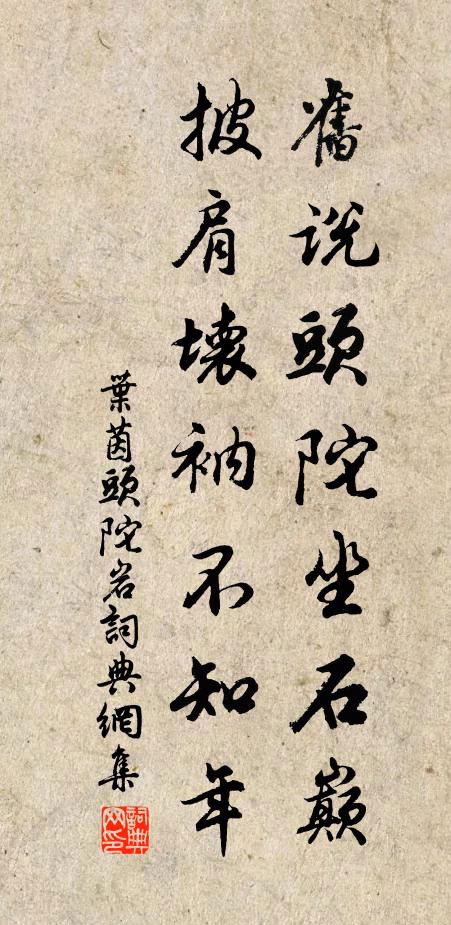 舊説頭陀坐石巔
披肩壞衲不知年
葉茵頭陀岩詞典網集
詞典网印